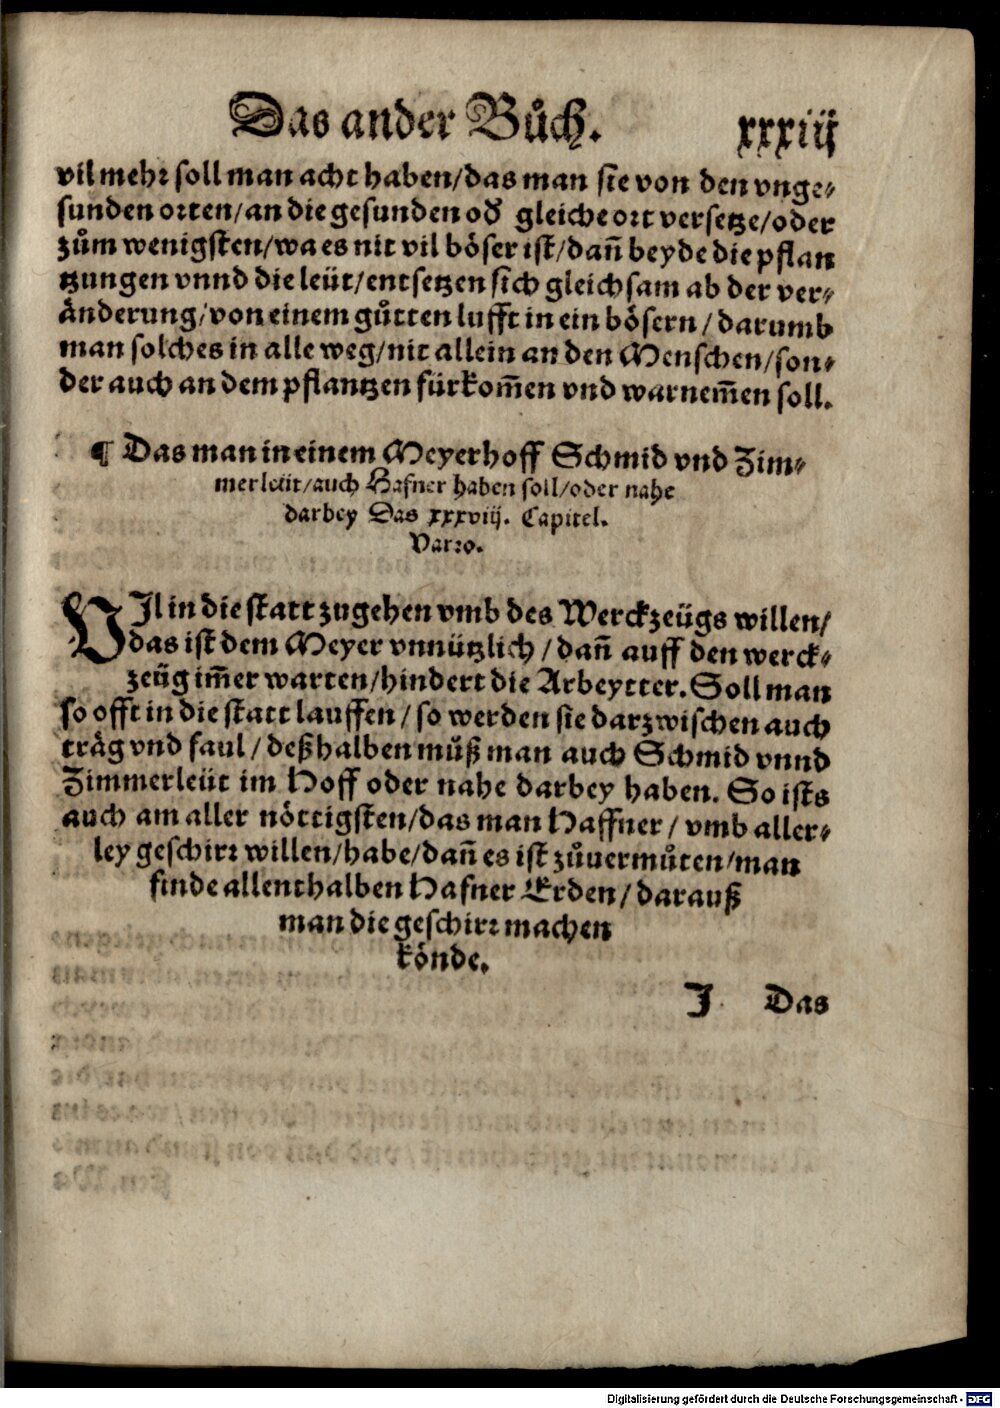 Das ander Bůch. xxxiij
vil mehr soll man acht haben/das man sie von den vnge-
sunden orten/an die gesunden oď gleiche ort versetze/oder
zům wenigsten/wa es nit vil böser ist/dañ beyde die pflan
tzungen vnnd die leüt/entsetzen sich gleichsam ab der ver-
änderung/von einem gůtten lufft in ein bösern/darumb
man solches in alle weg/nit allein an den Menschen/son-
der auch an dem pflantzen fürkom̃en vnd warnem̃en soll.
¶ Das man in einem Meyerhoff Schmid vnd Zim-
merleüt/auch Hafner haben soll/oder nahe
darbey Das xxxviij. Capitel.
Varro.
VJl in die statt zugehen vmb des Werckzeügs willen/
das ist dem Meyer vnnützlich/dañ auff den werck-
zeüg im̃er warten/hindert die Arbeytter. Soll man
so offt in die statt lauffen/so werden sie darzwischen auch
träg vnd faul/deßhalben můß man auch Schmid vnnd
Zimmerleüt im Hoff oder nahe darbey haben. So ists
auch am aller nöttigsten/das man Haffner/vmb aller-
ley geschirr willen/habe/dañ es ist zůuermůten/man
finde allenthalben Hafner Erden/darauß
man die geschirr machen
könde.
J Das
Digitalisierung gefördert durch die Deutsche Forschungsgemeinschaft - DFG